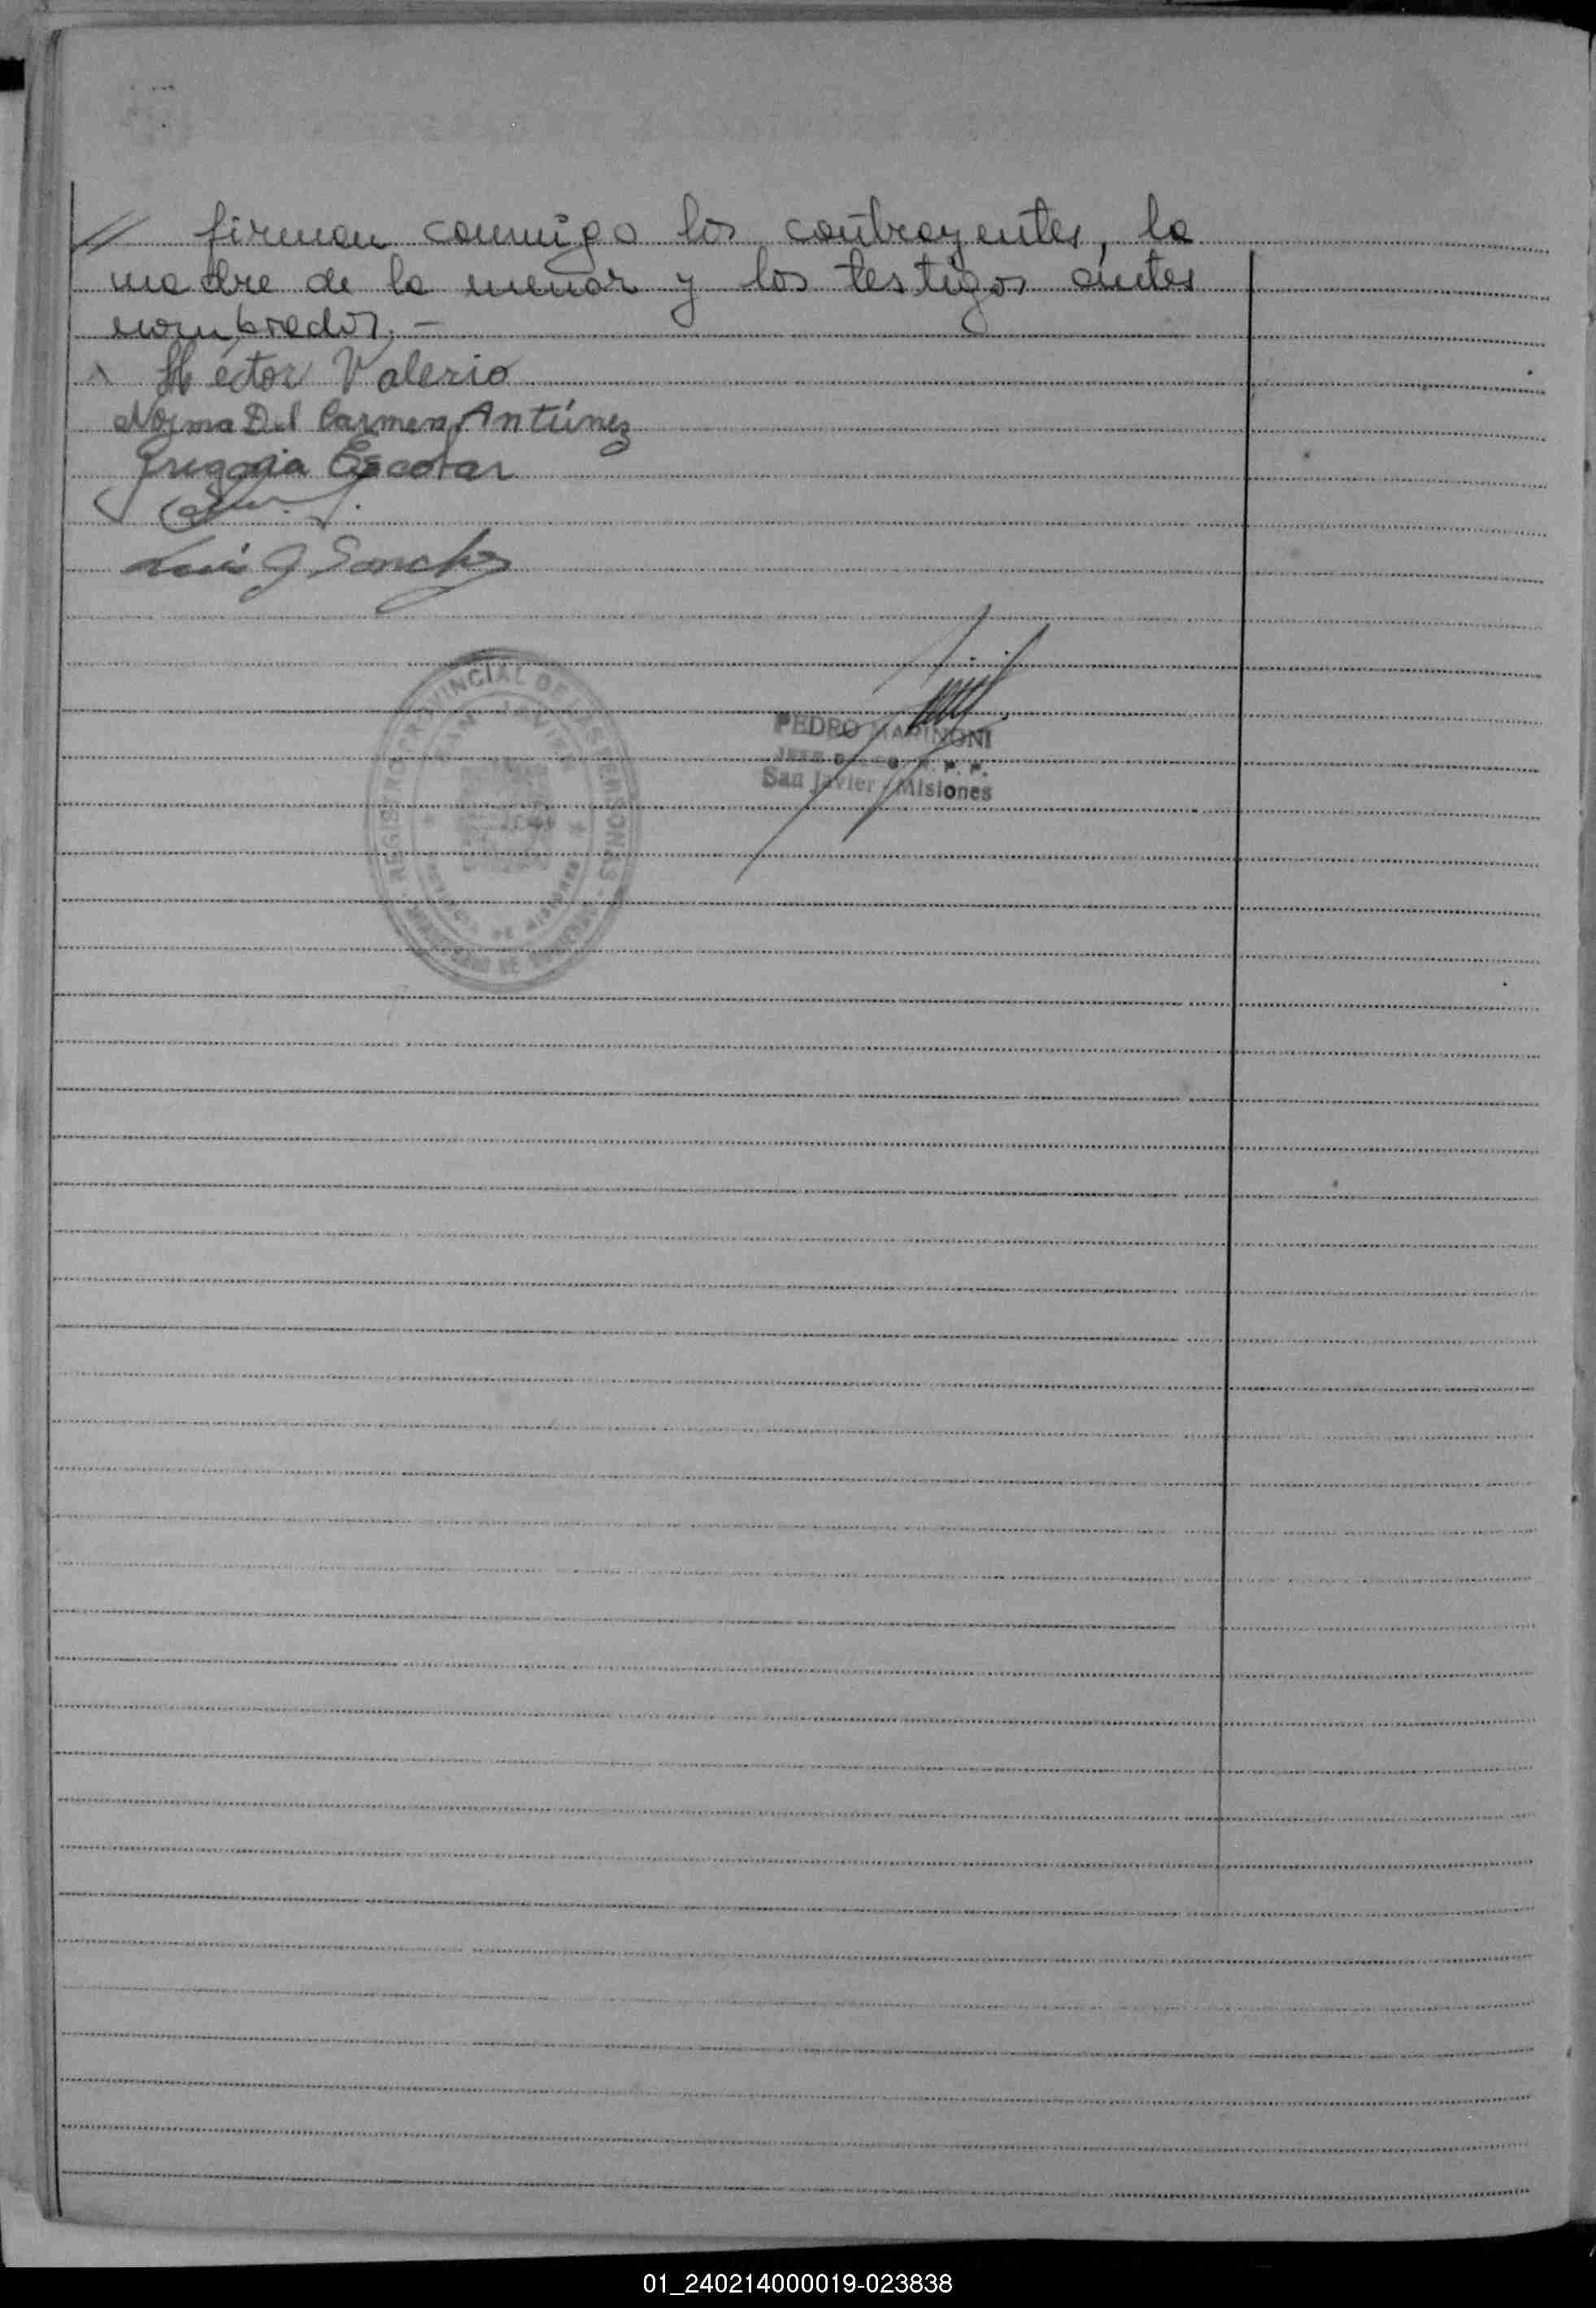 // firman conmigo los contrayentes, la
madre de la menor y los testigos ántes
nombrados.-
Héctor Valerio
Norma Del Carmen Antúnez
Gregoria Escobar
Luis J Sanchez
REGISTRO PROVINCIAL DE LAS PERSONAS
SAN JAVIER
DE MISIONES
PEDRO MARINONI
San Javier - Misiones
01_240214000019-023838